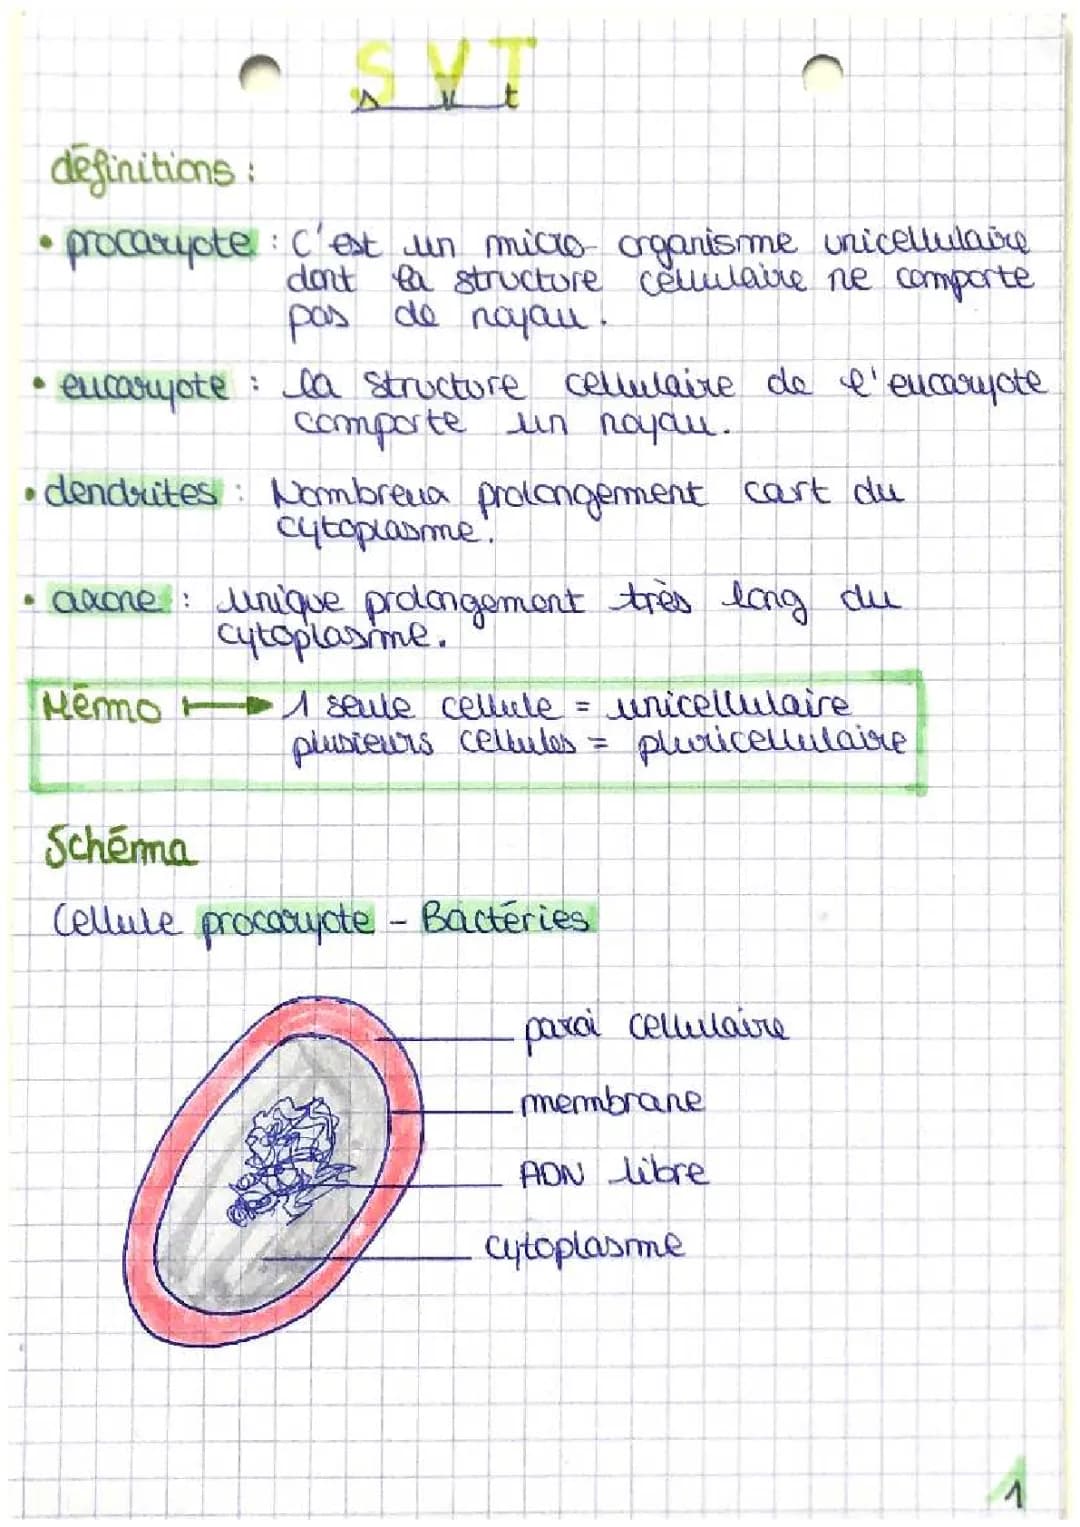 SVT
s v t
définitions :
• procaryote : C'est un micro-organisme unicellulaire
dont la structure cellulaire ne comporte
pas de noyau.
• eucaryote : la structure cellulaire de l'eucaryote
comporte un noyau.
• dendrites : Nombreux prolongement cart du
cytoplasme.
• axone : unique prolongement très long du
cytoplasme.
Mémo → 1 seule cellule = unicellulaire
plusieurs cellules = pluricellulaire
Schéma
Cellule procaryote - Bactéries
paroi cellulaire
membrane
ADN libre
cytoplasme
1